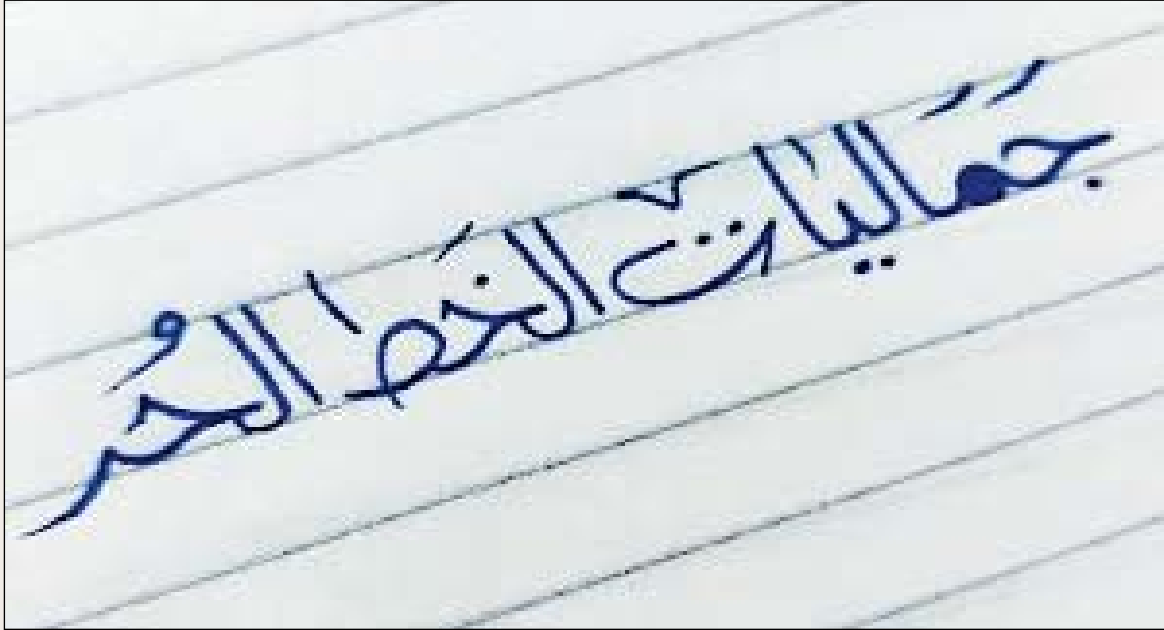 جَمَاليَات الخَط الحُر